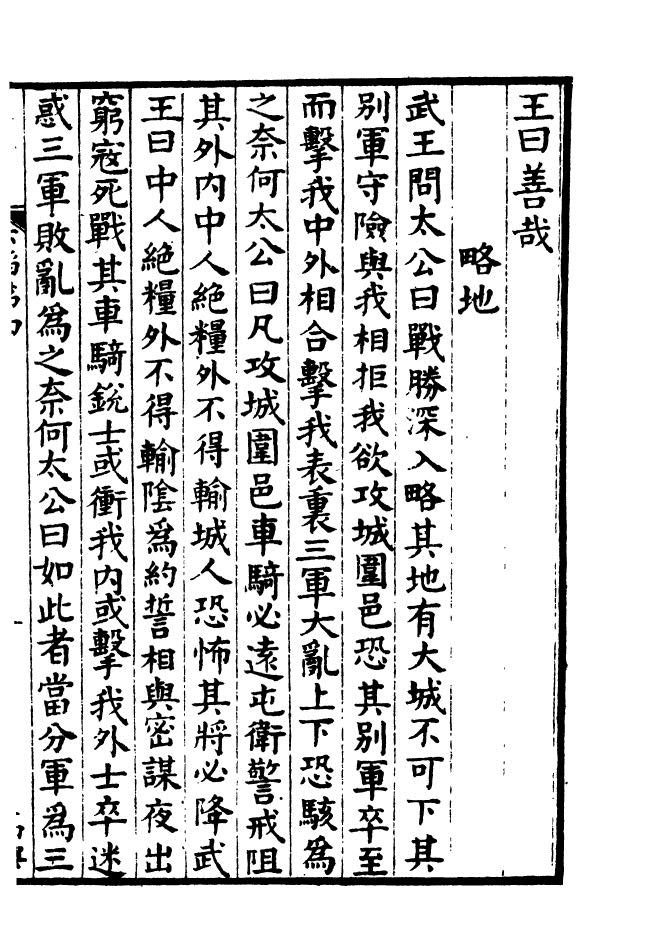 王曰善哉
略地
武王問太公曰戰勝深入略其地有大城不可下其
别軍守險與我相拒我欲攻城圍邑恐其别軍卒至
而擊我中外相合擊我表裏三軍大亂上下恐駭為
之奈何太公曰凡攻城圍邑車騎必遠屯衛警戒阻
其外内中人絶糧外不得輸城人恐怖其將必降武
王曰中人絶糧外不得輸陰為約誓相與密謀夜出
窮寇死戰其車騎銳士或衝我内或擊我外士卒迷
惑三軍敗亂為之奈何太公曰如此者當分軍為三